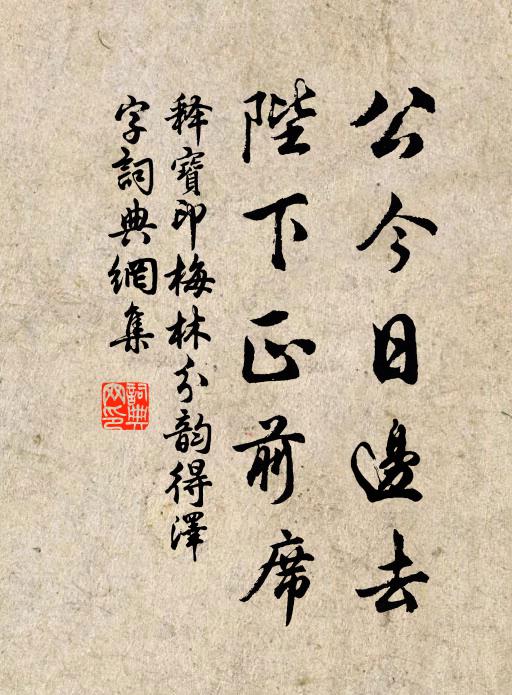 公今日邊去
陛下正前席
释寶印梅林分韵得澤
字詞典網集
詞典
网印